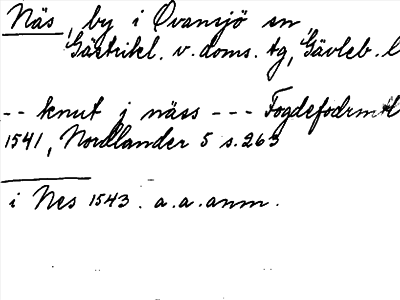 Näs, by i Ovansjö sn,
Gästrikl. v. doms. tg, Gävleb. l
-- knut j näss --- Fogdefodrmtl
1541, Nordlander 5 s. 263
i Nes 1543. a.a. anm.